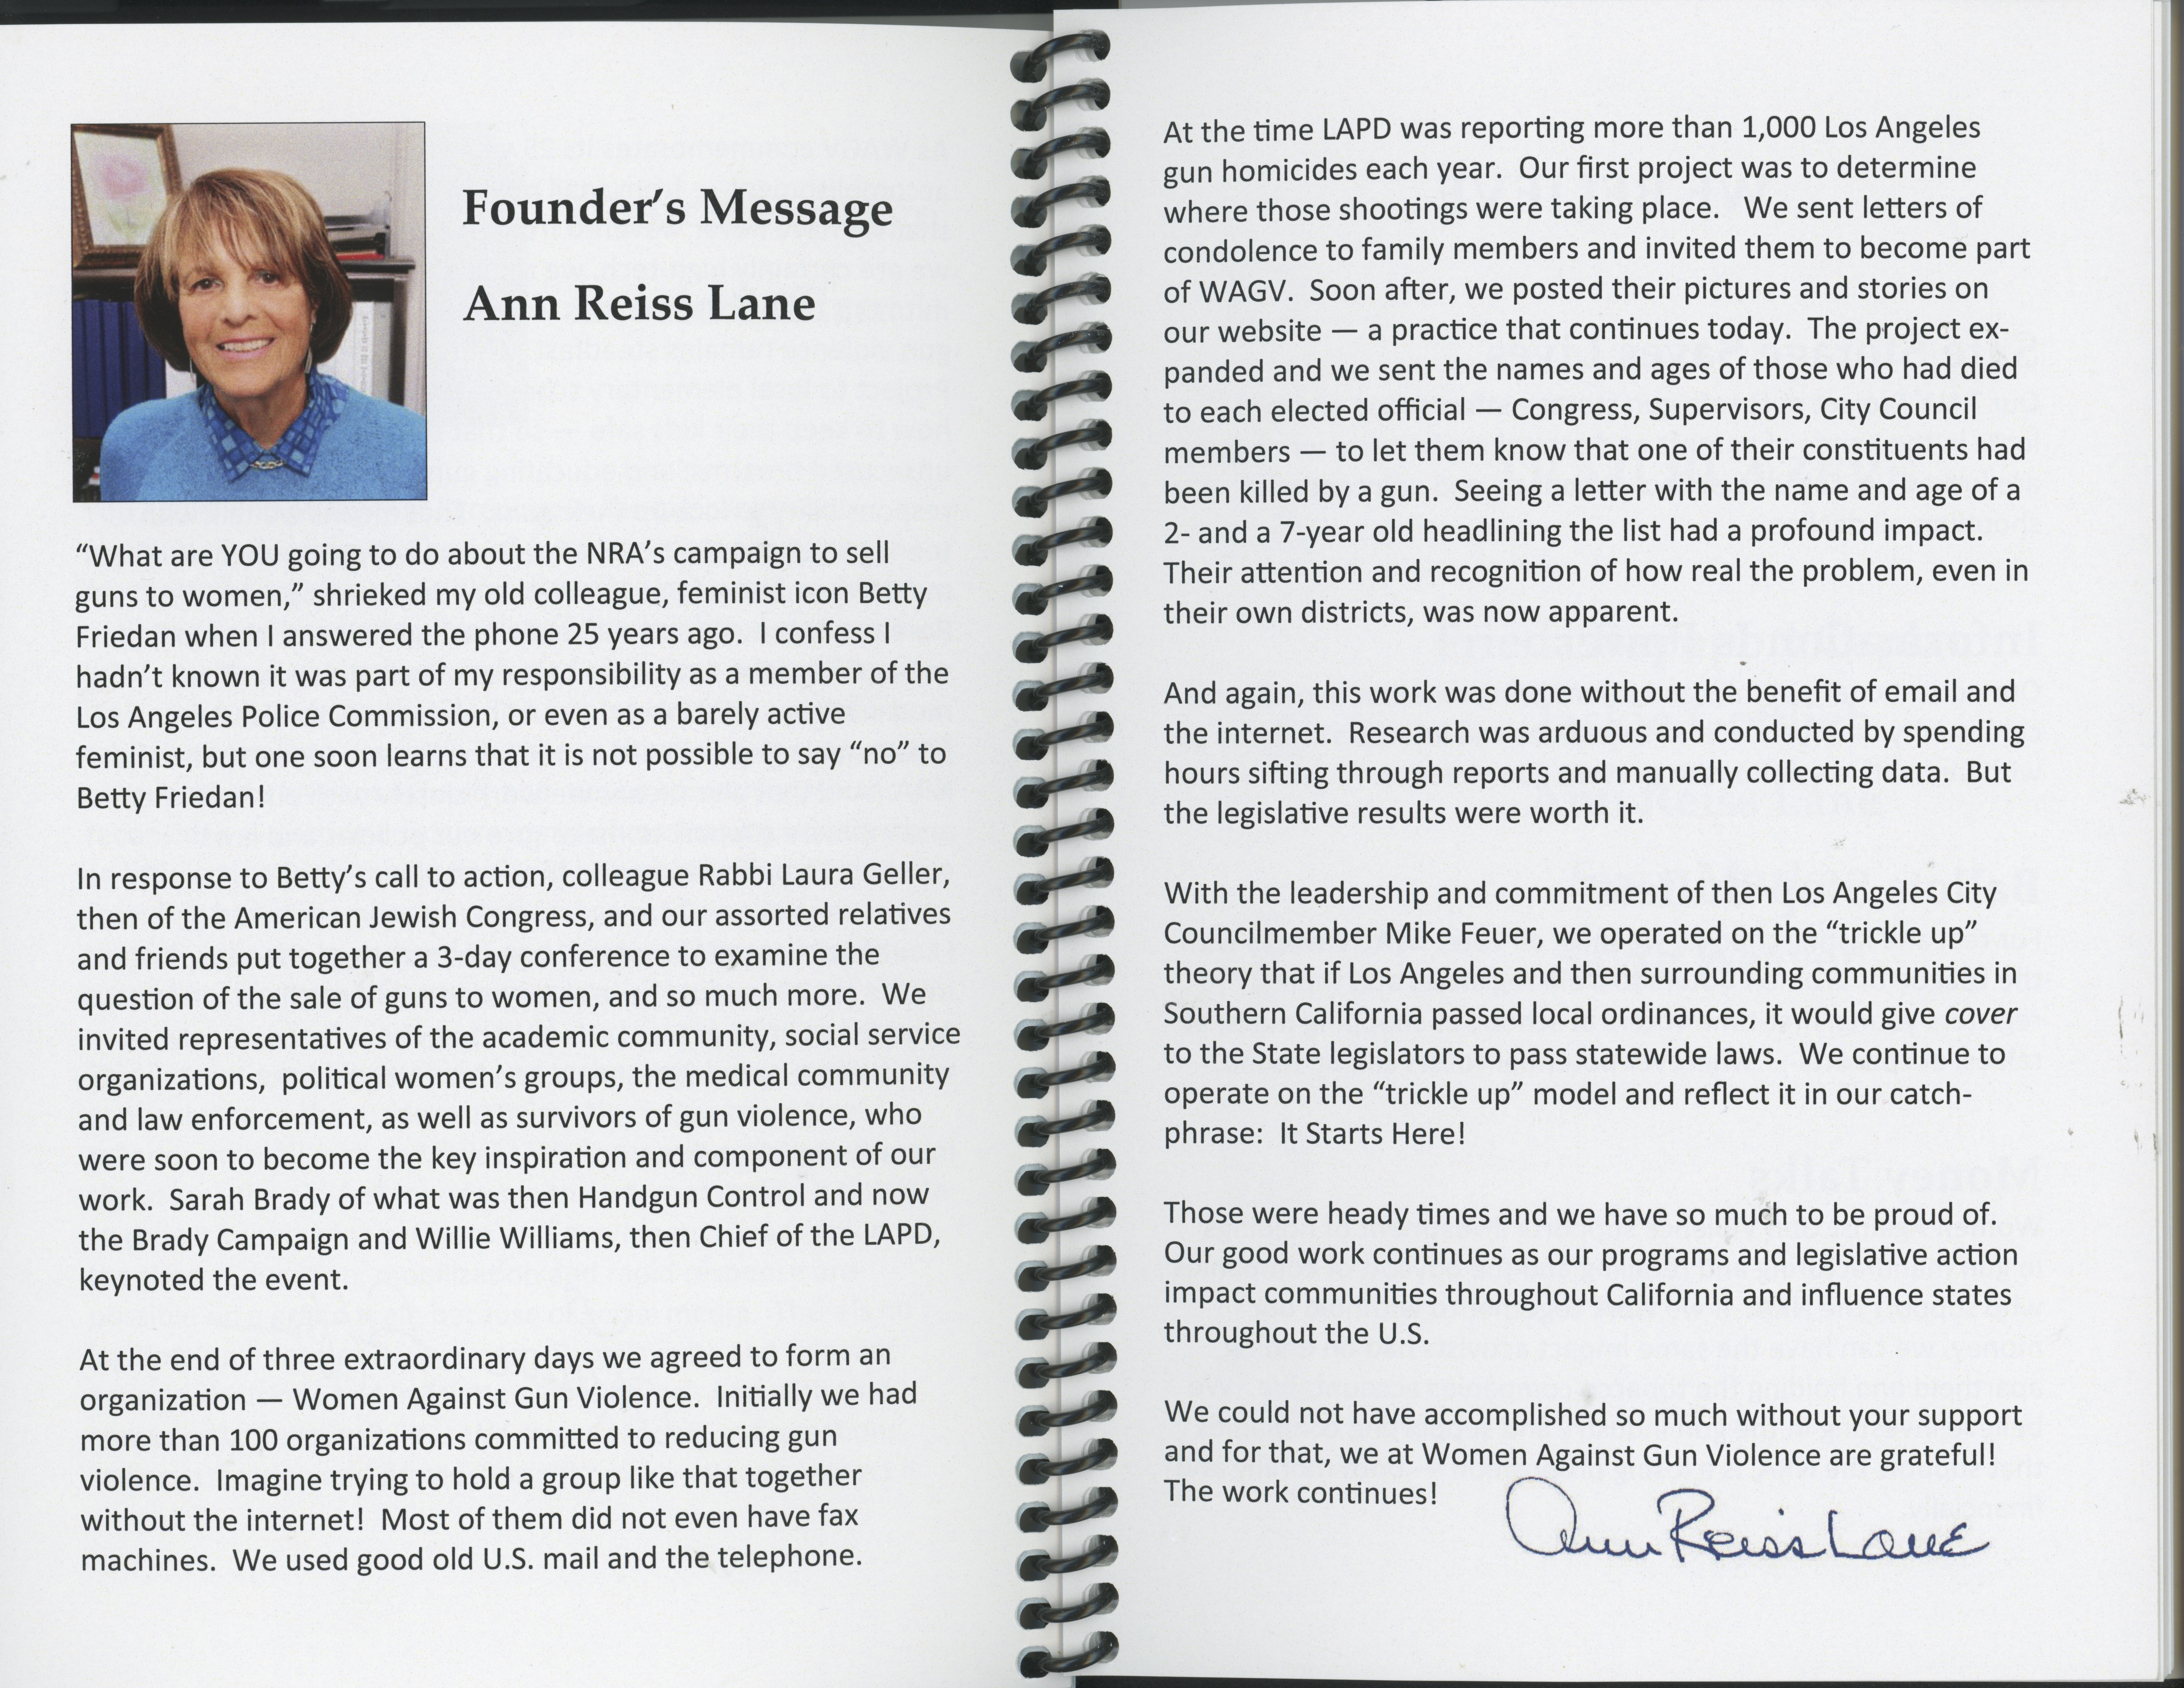 Founder's Message
Ann Reiss Lane
“What are YOU going to do about the NRA’s campaign to sell
guns to women,” shrieked my old colleague, feminist icon Betty
Friedan when I answered the phone 25 years ago.  I confess I
hadn’t known it was part of my responsibility as a member of the
Los Angeles Police Commission, or even as a barely active
feminist, but one soon learns that it is not possible to say “no” to
Betty Friedan!
In response to Betty’s call to action, colleague Rabbi Laura Geller,
then of the American Jewish Congress, and our assorted relatives
and friends put together a 3-day conference to examine the
question of the sale of guns to women, and so much more.  We
invited representatives of the academic community, social service
organizations,  political women’s groups, the medical community
and law enforcement, as well as survivors of gun violence, who
were soon to become the key inspiration and component of our
work.  Sarah Brady of what was then Handgun Control and now
the Brady Campaign and Willie Williams, then Chief of the LAPD,
keynoted the event.
At the end of three extraordinary days we agreed to form an
organization — Women Against Gun Violence.  Initially we had
more than 100 organizations committed to reducing gun
violence.  Imagine trying to hold a group like that together
without the internet!  Most of them did not even have fax
machines.  We used good old U.S. mail and the telephone.
At the time LAPD was reporting more than 1,000 Los Angeles
gun homicides each year.  Our first project was to determine
where those shootings were taking place.   We sent letters of
condolence to family members and invited them to become part
of WAGV.  Soon after, we posted their pictures and stories on
our website — a practice that continues today.  The project ex-
panded and we sent the names and ages of those who had died
to each elected official — Congress, Supervisors, City Council
members — to let them know that one of their constituents had
been killed by a gun.  Seeing a letter with the name and age of a
2- and a 7-year old headlining the list had a profound impact.
Their attention and recognition of how real the problem, even in
their own districts, was now apparent.
And again, this work was done without the benefit of email and
the internet.  Research was arduous and conducted by spending
hours sifting through reports and manually collecting data.  But
the legislative results were worth it.
With the leadership and commitment of then Los Angeles City
Councilmember Mike Feuer, we operated on the “trickle up”
theory that if Los Angeles and then surrounding communities in
Southern California passed local ordinances, it would give cover
to the State legislators to pass statewide laws.  We continue to
operate on the “trickle up” model and reflect it in our catch-
phrase:  It Starts Here!
Those were heady times and we have so much to be proud of.
Our good work continues as our programs and legislative action
impact communities throughout California and influence states
throughout the U.S.
We could not have accomplished so much without your support
and for that, we at Women Against Gun Violence are grateful!
The work continues!
Ann Reiss Lane